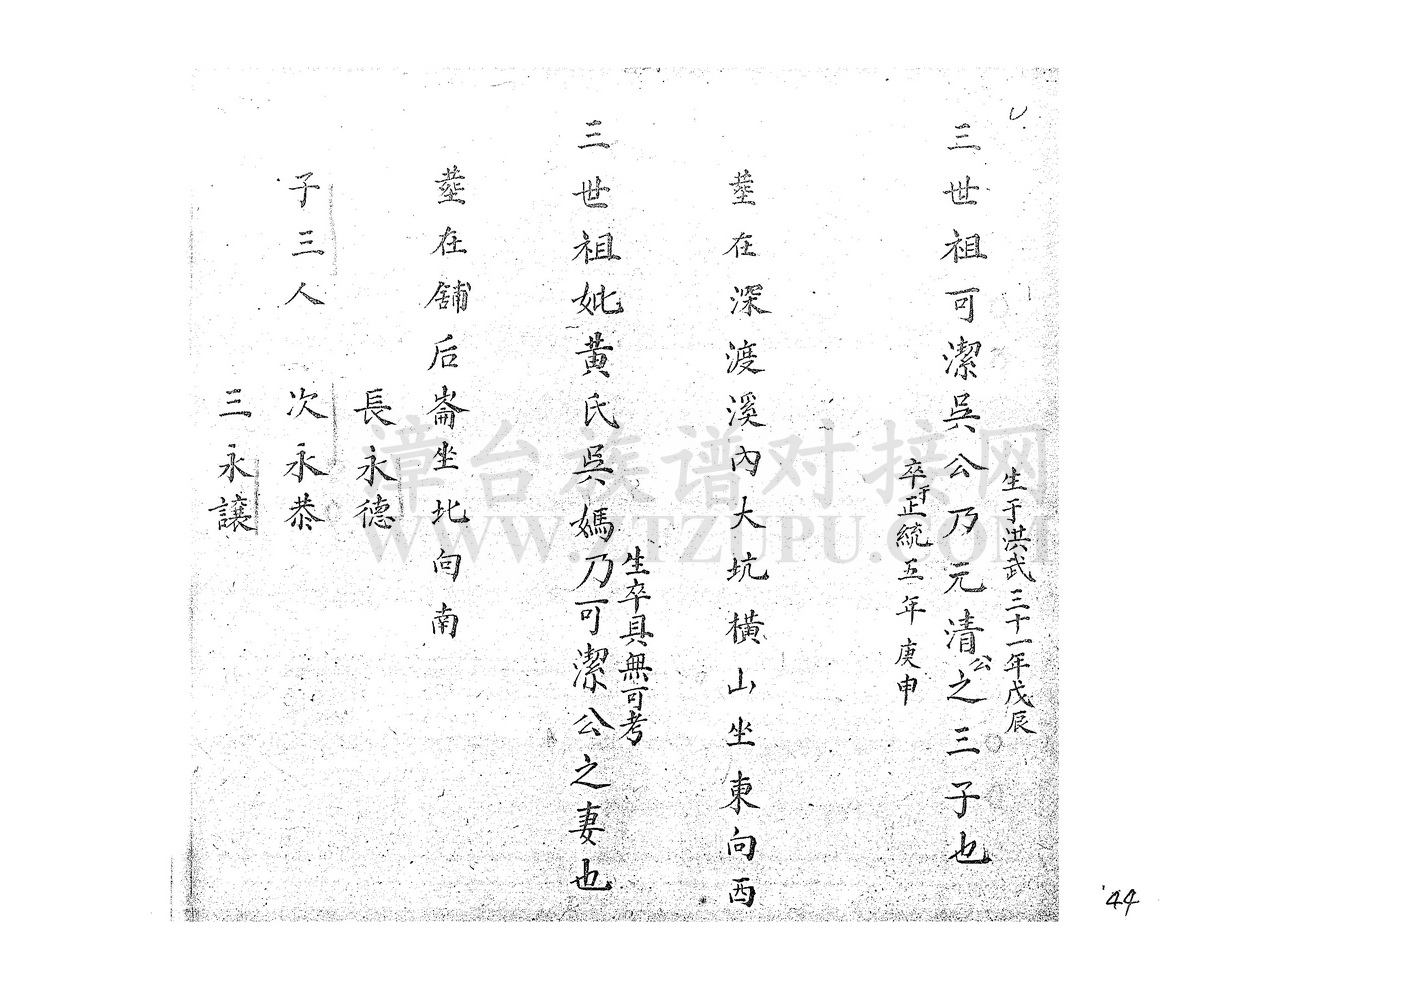 生于洪武三十一年戊辰
三世祖可潔吳公乃元清公之三子也
卒于正統五年庚申
塟在深渡溪內大坑橫山坐東向西
生卒具無可考
三世祖妣黃氏吳媽乃可潔公之妻也
塟在舖后崙坐北向南
長永德
子三人 次永恭
三永讓
漳台族谱对接网
WWW.ZTZUPU.COM
44